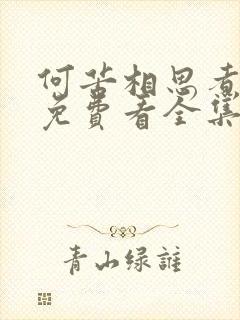 何苦相思煮
免费看全集
青山绿谁